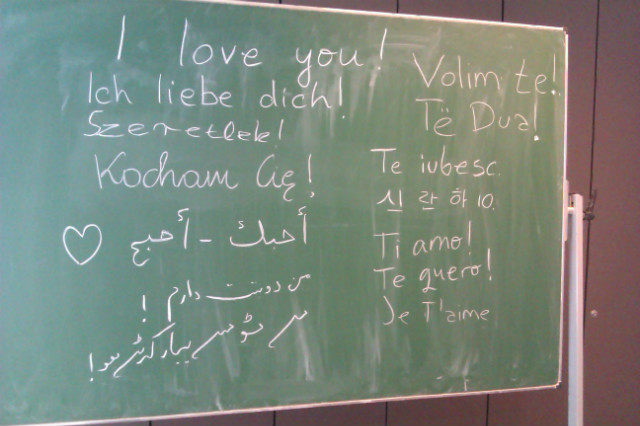 I love you!
Ich liebe dich!
Szeretlek!
Kocham Cię!
أحبك - أحبج
من دوست دارم !
پیار
Volim te!
Të Dua!
Te iubesc.
란 하
Ti amo!
Te quero!
Je T'aime